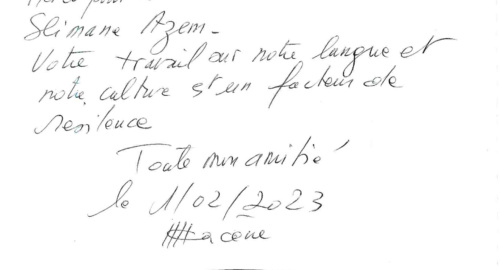 Slimane Azem.
Votre travail sur notre langue et
notre culture est un facteur de
resilence
Toute mon amitié
le 1/02/2023
Hacene